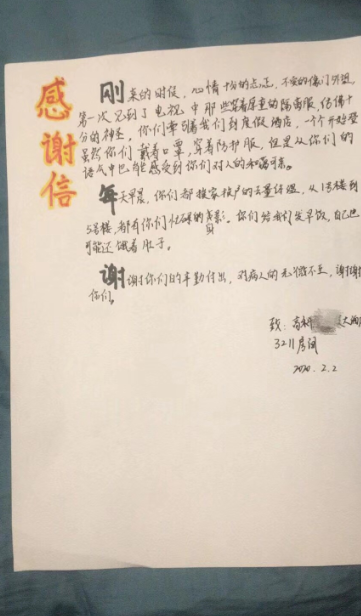 感谢信
刚来的时候，心情十分的忐忑，不安的像门外望
第一次见到了电视中那些穿着厚重的隔离服，仿佛十
分的神圣，你们带领着我们到度假酒店，一个个开始登
虽然你们戴着口罩，穿着防护服，但是从你们的
语气中也能感受到你们对人的和蔼可亲。
每天早晨，你们都挨家挨户的去量体温，从1号楼到
5号楼，都有你们忙碌的身影。你们给我们发早饭，自己也
可能还饿着肚子。
谢谢你们的辛勤付出，对病人的无微不至，谢谢
你们。
致：
3211房间
2020.2.2